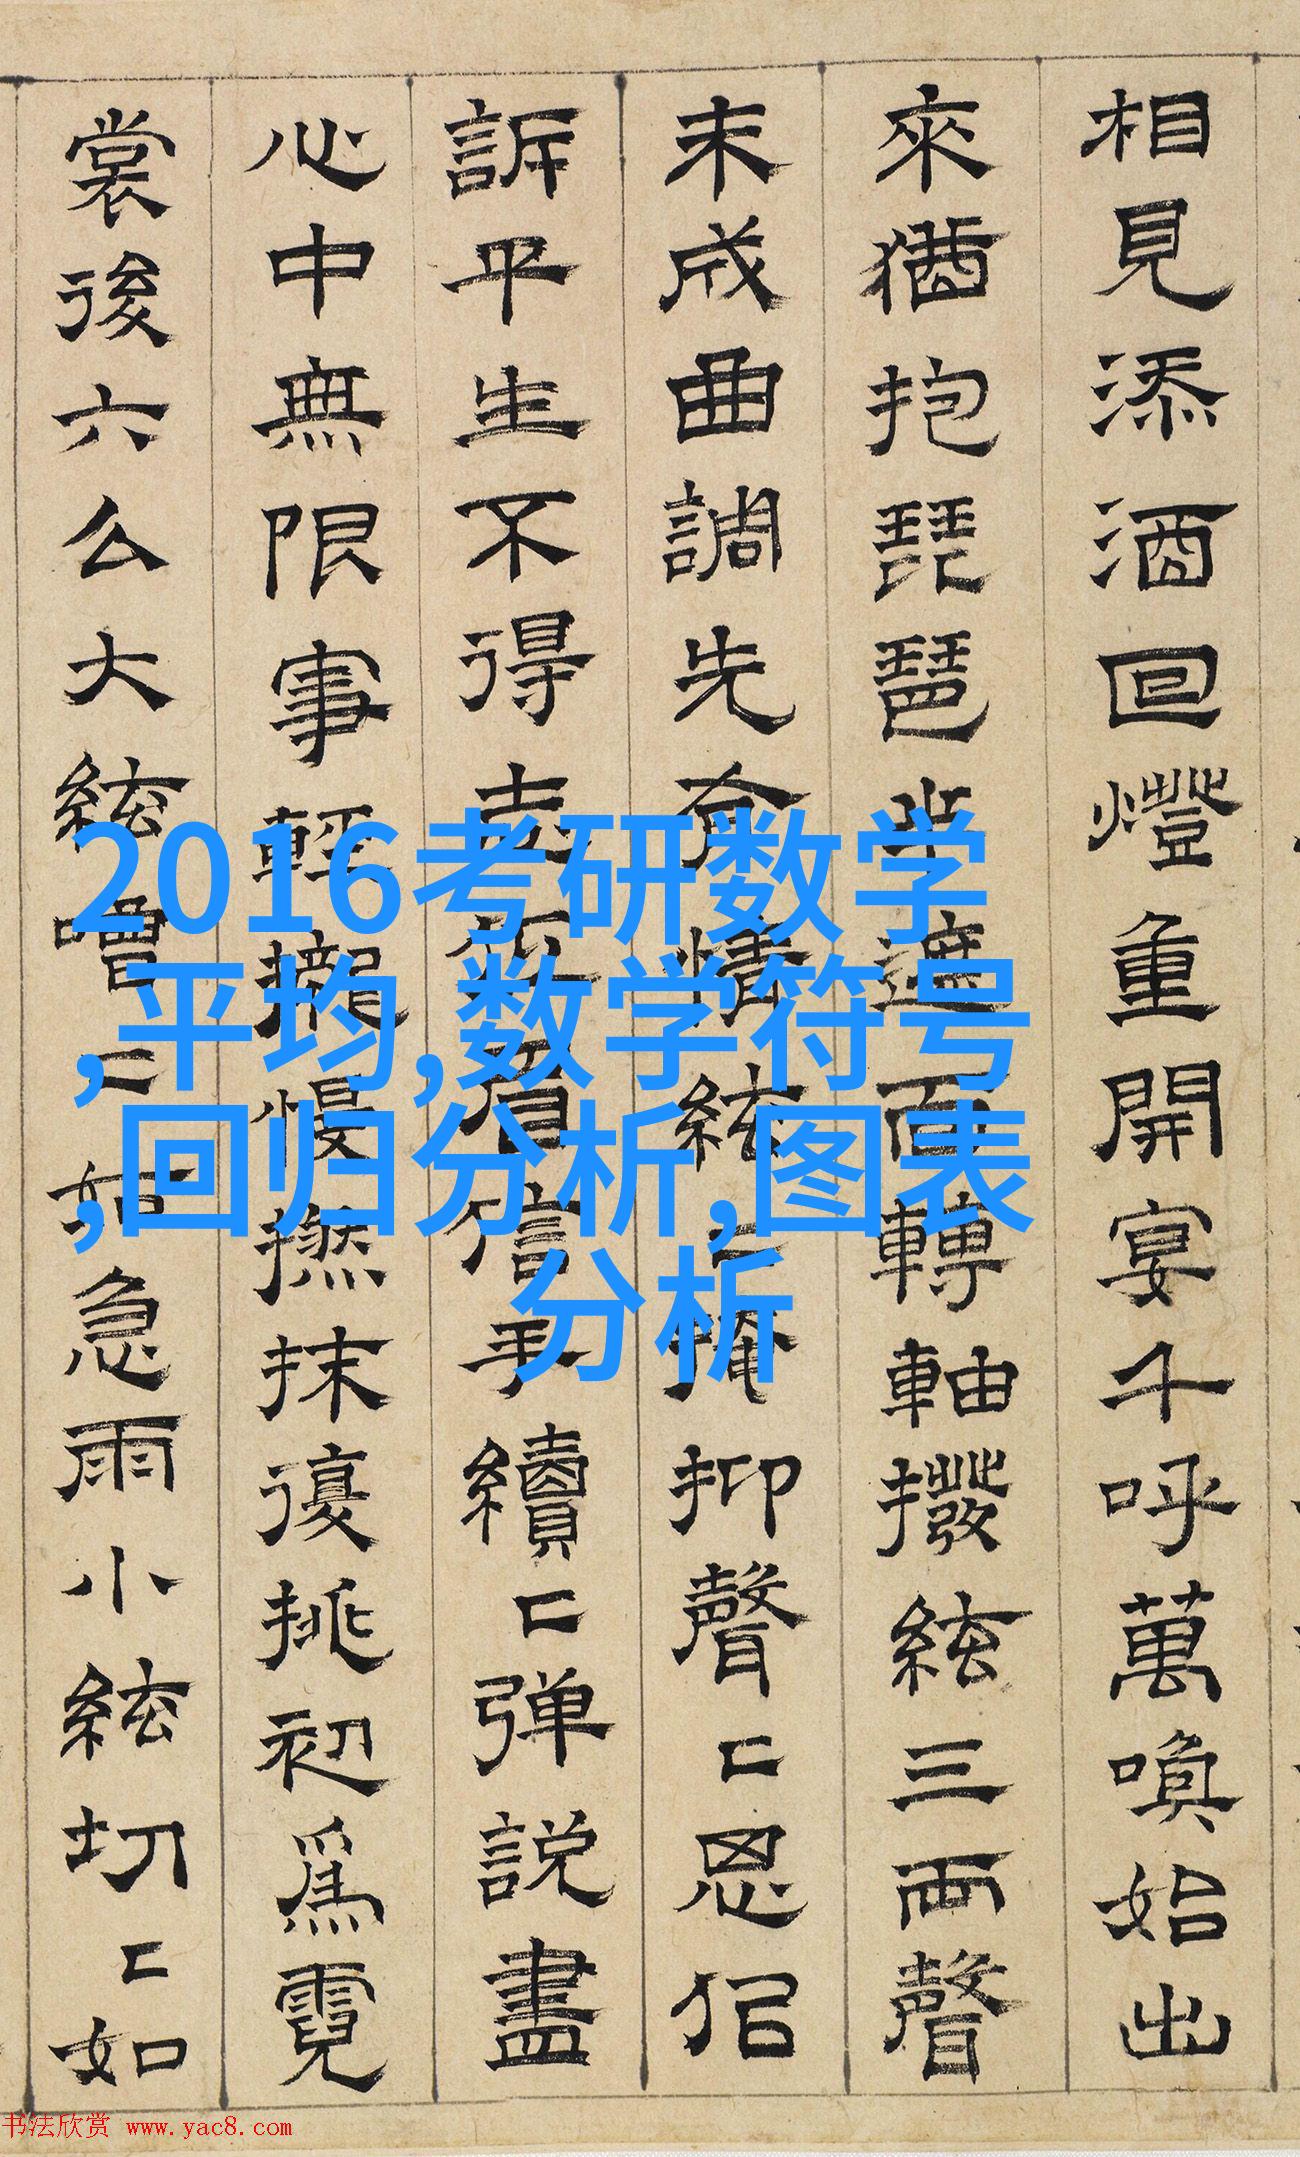 相見添酒回燈重開宴千呼萬喚始出
來猶抱琵琶半遮面轉軸撥絃三兩聲
未成曲調先有情絃〻掩抑聲〻思似
訴平生不得志低眉信手續〻弹説盡
心中無限事輕攏慢撚抹復挑初爲霓
裳後六么大絃嘈〻如急雨小絃切〻如
2016考研数学
,平均,数学符号
,回归分析,图表
分析
书法欣赏 www.yac8.com